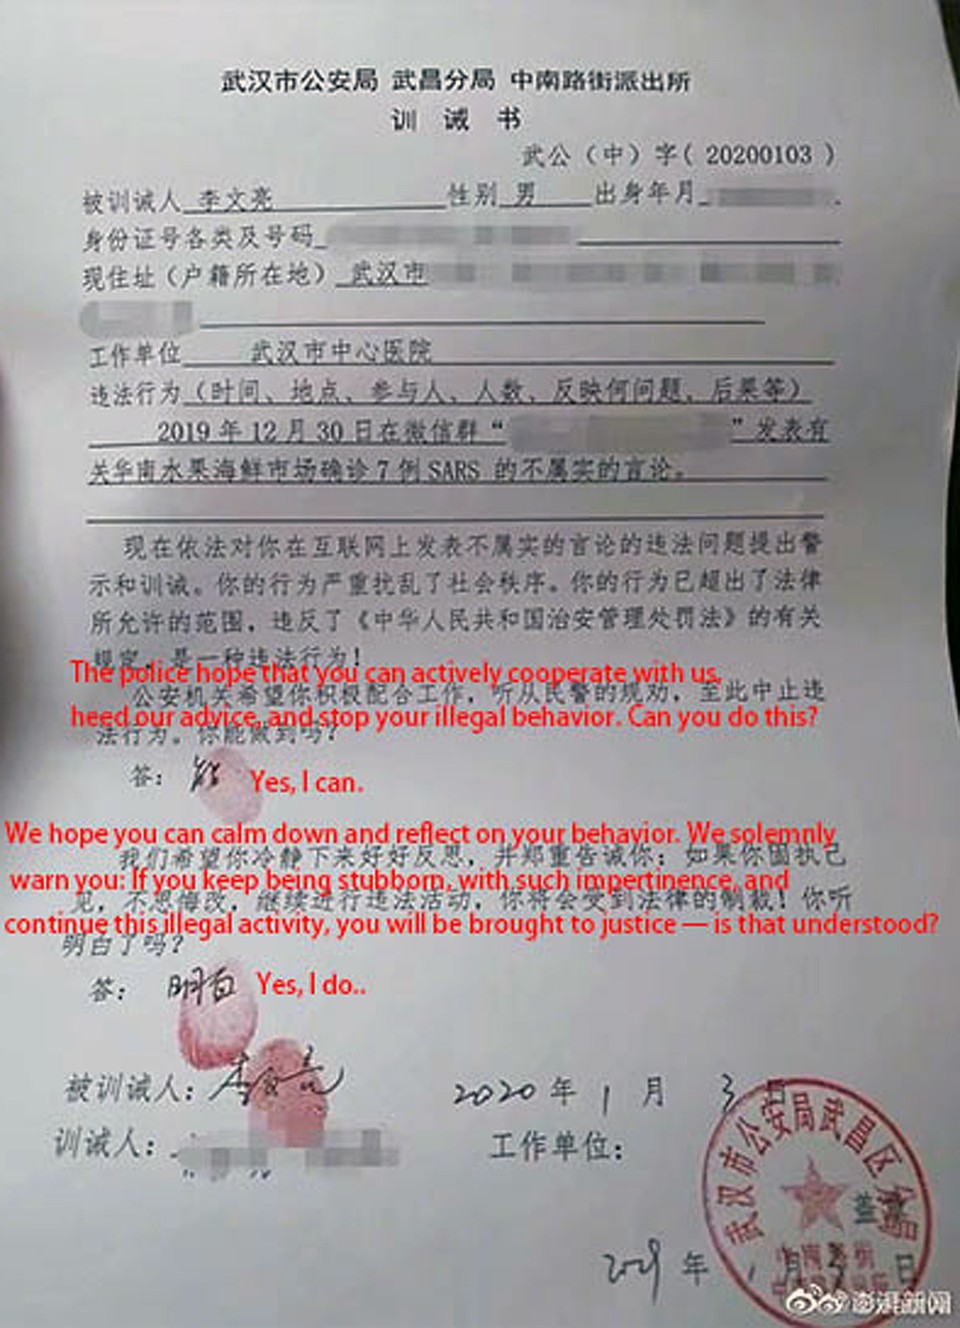 武汉市公安局 武昌分局 中南路街派出所
训 诫 书
武公（中）字( 20200103 )
被训诫人 李文亮 性别 男 出身年月
身份证号各类及号码
现住址（户籍所在地） 武汉市
工作单位 武汉市中心医院
违法行为（时间、地点、参与人、人数、反映何问题、后果等）
2019 年 12 月 30 日在微信群“ ”发表有
关华南水果海鲜市场确诊 7 例 SARS 的不属实的言论。
现在依法对你在互联网上发表不属实的言论的违法问题提出警
示和训诫。你的行为严重扰乱了社会秩序。你的行为已超出了法律
所允许的范围，违反了《中华人民共和国治安管理处罚法》的有关
规定，是一种违法行为！
The police hope that you can actively cooperate with us,
公安机关希望你积极配合工作，听从民警的规劝，至此中止违
heed our advice, and stop your illegal behavior. Can you do this?
法行为。你能做到吗？
答： 能 Yes, I can.
We hope you can calm down and reflect on your behavior. We solemnly
我们希望你冷静下来好好反思，并郑重告诫你：如果你固执己
warn you: If you keep being stubborn, with such impertinence, and
见，不思悔改，继续进行违法活动，你将会受到法律的制裁！你听
continue this illegal activity, you will be brought to justice — is that understood?
明白了吗？
答： 明白 Yes, I do..
被训诫人： 李文亮 2020 年 1 月 3 日
训诫人： 工作单位：
武汉市公安局武昌区分局
年 1 月 3 日
@澎湃新闻